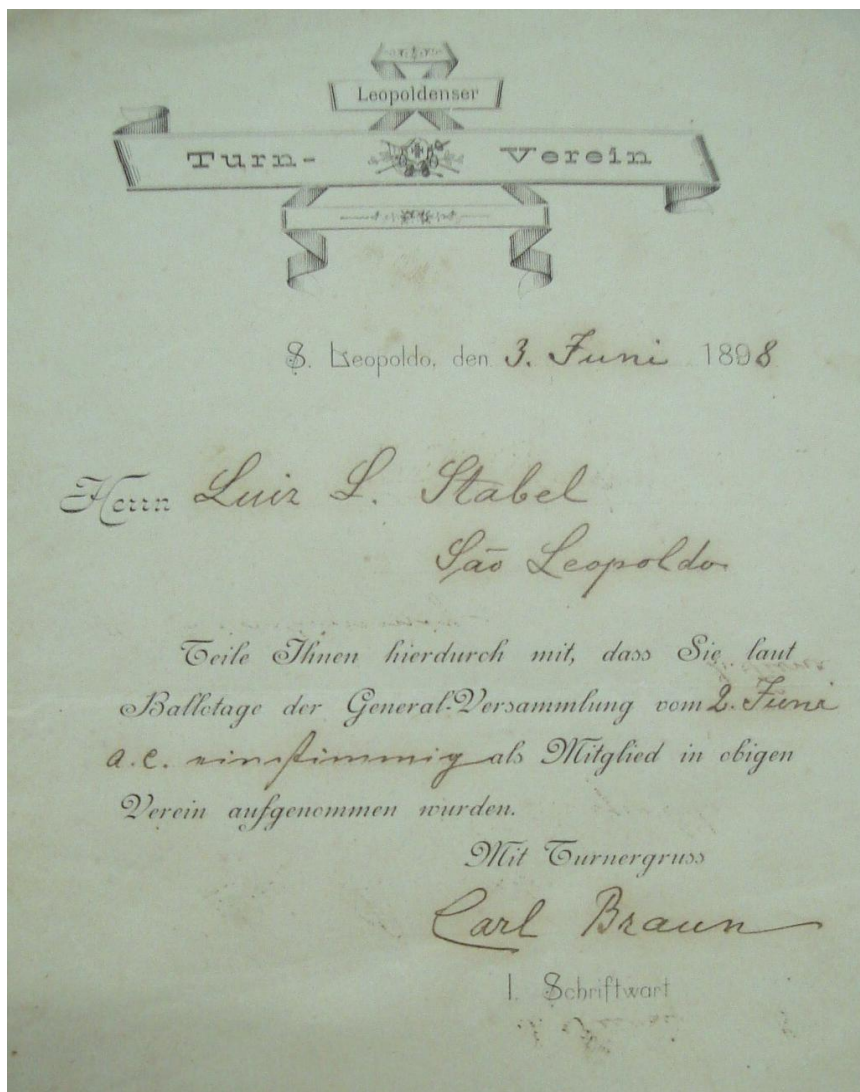 Leopoldenser
Turn- Verein
S. Leopoldo, den 3. Juni 1898
Herrn Luiz L. Stabel
São Leopoldo
Teile Ihnen hierdurch mit, dass Sie laut
Ballotage der General-Versammlung vom 2. Juni
a. c. einstimmig als Mitglied in obigen
Verein aufgenommen wurden.
Mit Turnergruss
Carl Braun
I. Schriftwart